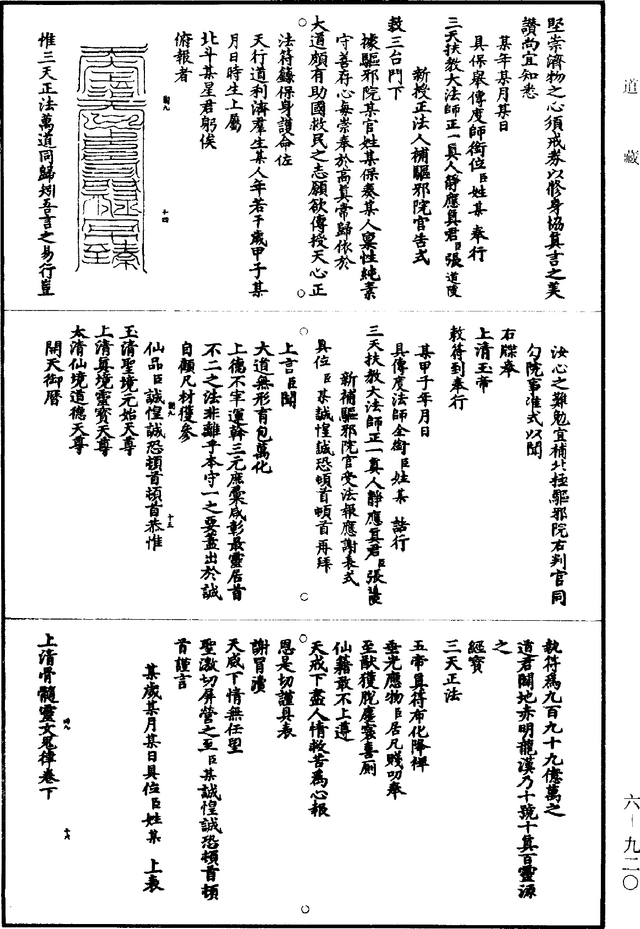 道藏
堅崇濟物之心須戒券以修身協真言之美
讚尚宜知悉
某年某月某日
具保舉傳度師銜位臣姓某 奉行
三天扶教大法師正一真人靜應真君臣張道陵
新授正法人補驅邪院官告式
敕三台門下
據驅邪院某官姓某保奏某人稟性純素
守善存心每崇奉於高真常歸依於
大道頗有助國救民之志願欲傳授天心正
法符籙保身護命佐
天行道利濟羣生某人年若干歲甲子某
月日時生上屬
北斗某星君躬俟
俯報者
惟三天正法萬道同歸矧吾言之易行豈
汝心之難勉宜補北極驅邪院右判官同
勾院事准式以聞
右牒奉
上清玉帝
敕符到奉行
某甲子年月日
具傳度法師全銜臣姓某 誥行
三天扶教大法師正一真人靜應真君臣張道陵
新補驅邪院官受法報應謝表式
具位臣某誠惶誠恐頓首頓首再拜
上言臣聞
大道無形育包萬化
上德不宰運斡三元庶彙咸彰最靈居首
不二之法非離乎本守一之要蓋出於誠
自顧凡材獲參
仙品臣誠惶誠恐頓首頓首恭惟
玉清聖境元始天尊
上清真境靈寶天尊
太清仙境道德天尊
開天御曆
執符爲九百九十九億萬之
道君闢地赤明龍漢乃十號十真百靈源
之
經寶
三天正法
五帝真符布化降神
垂光應物臣居凡賤叨奉
至猷獲脫塵寰喜廁
仙籍敢不上遵
天戒下盡人情救苦爲心報
恩是切謹具表
謝冒瀆
天威下情無任望
聖激切屏營之至臣某誠惶誠恐頓首頓
首謹言
某歲某月某日具位臣姓某 上表
上清骨髓靈文鬼律卷下
六－九二〇